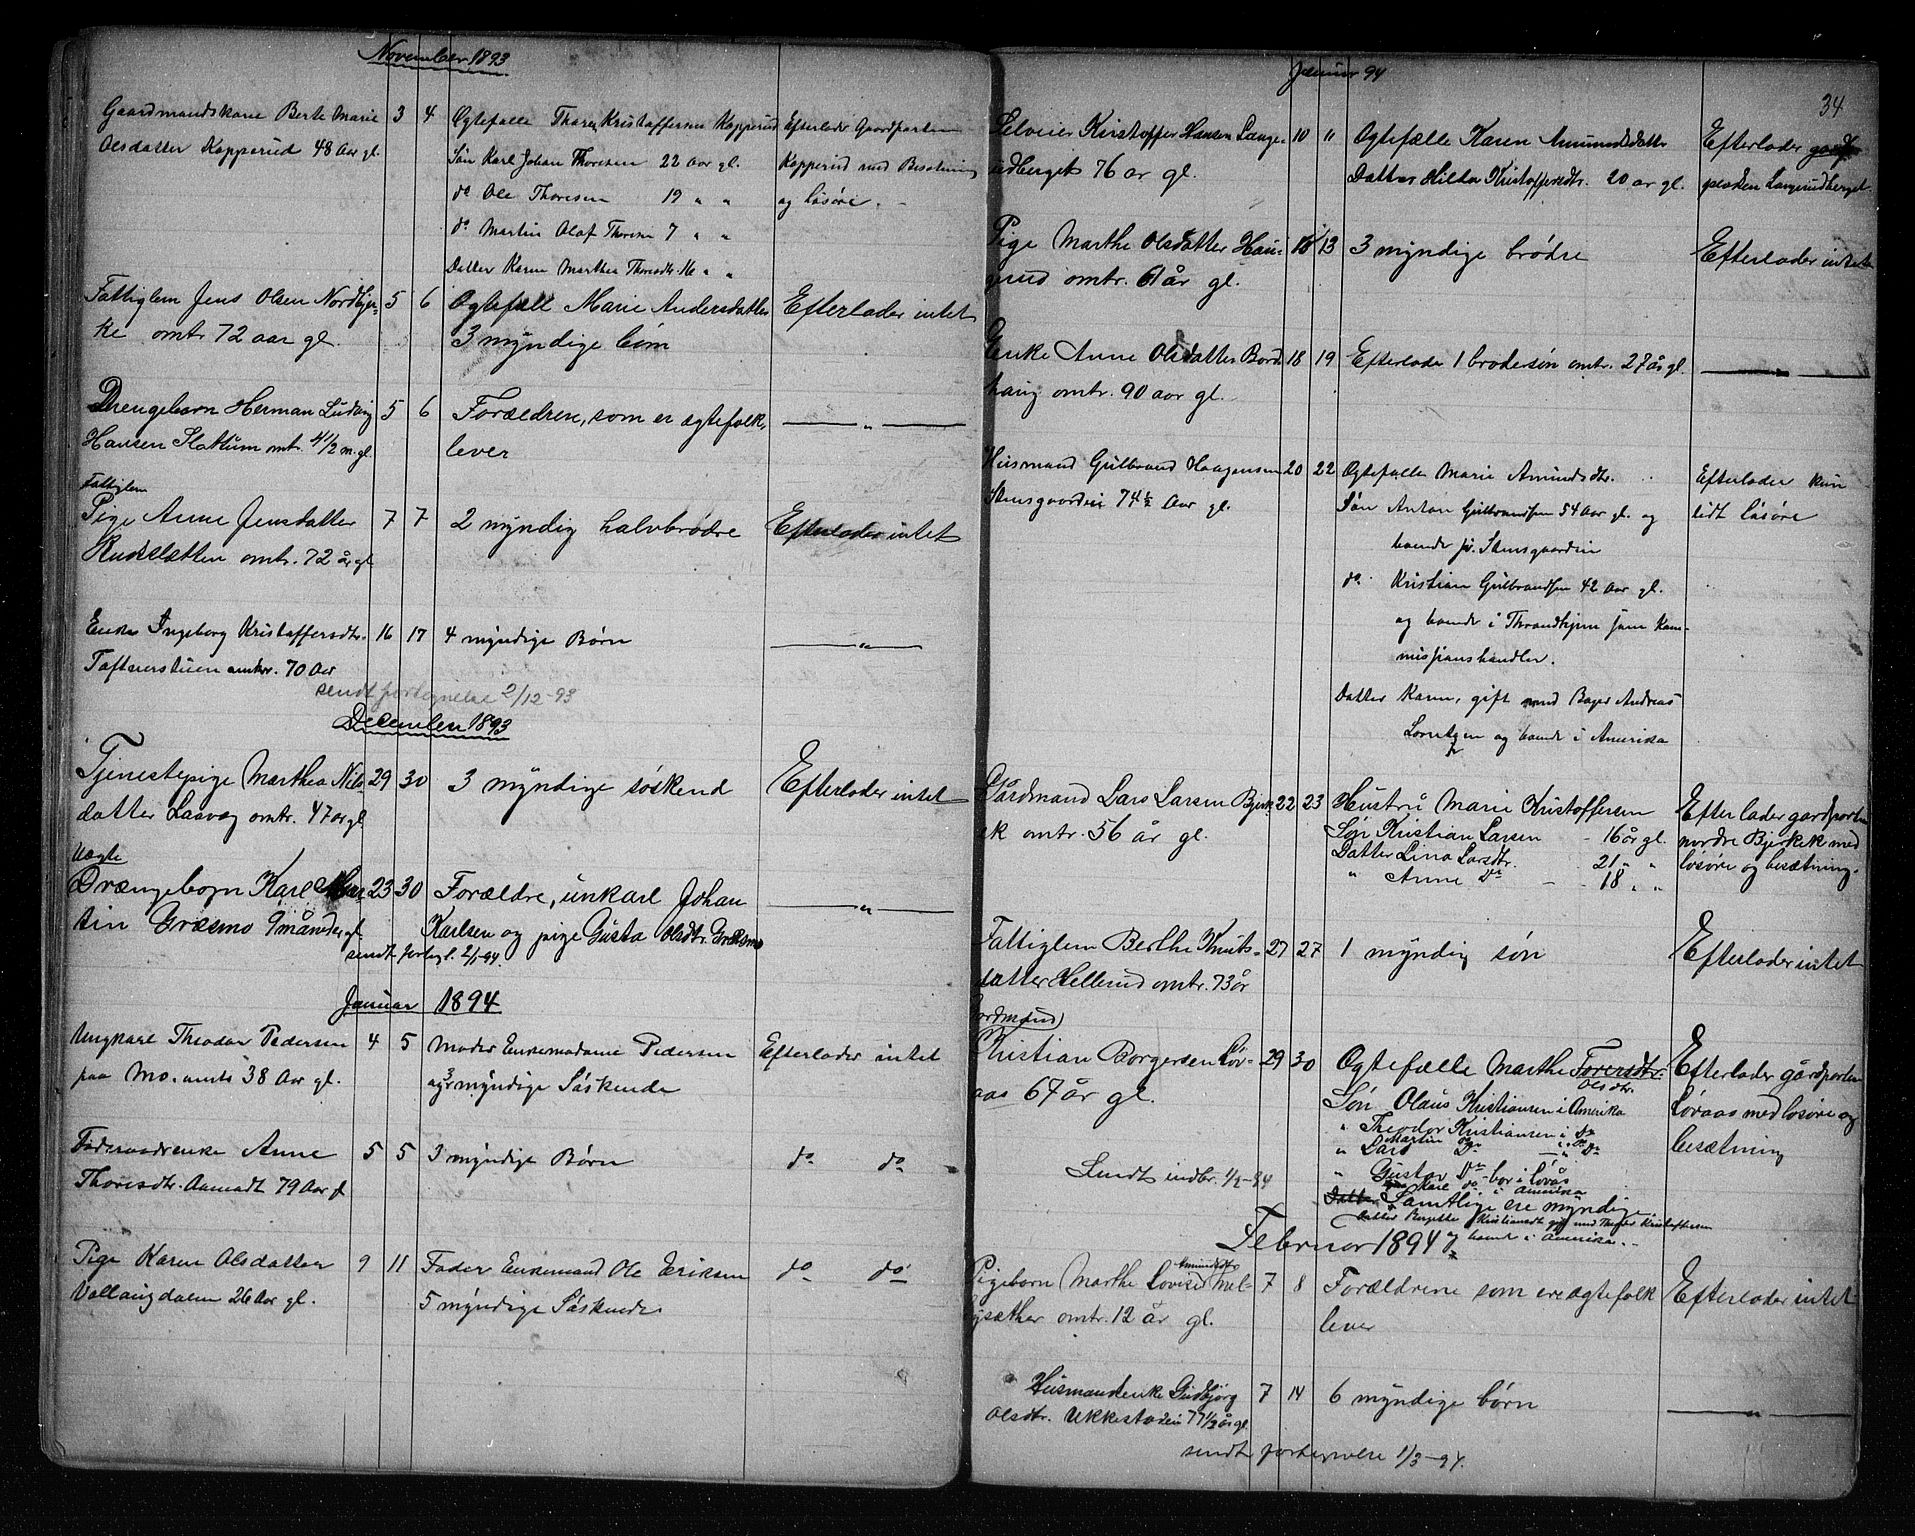 November 1893
Gaardmandskone Berte Marie 3 4 Ægtefælle Thore Kristoffersen Kopperud Efterlader Gaardparten
Olsdatter Kopperud 48 Aar gl. Søn Karl Johan Thoresen 22 Aar gl. Kopperud med Besætning
do Ole Thoresen 19 " " og løsøre.
do Martin Olaf Thoresen 7 " "
Datter Karen Marthea Thoresdtr. 16 " "
Fattiglem Jens Olsen Nordbye- 5 6 Ægtefælle Marie Andersdatter Efterlader intet
omtr. 72 aar gl. 3 myndige børn
Drengebarn Herman Ludvig 5 6 Forældrene, som er ægtefolk, — " —
Hansen Slattum omtr. 4 1/2 m. gl. lever
Fattiglem
Pige Anne Jensdatter 7 7 2 myndig halvbrødre Efterlader intet
Rudsletten omtr. 72 år gl
Enke Ingeborg Kristoffersdtr. 16 17 4 myndige Børn — " —
70 Aar
sendt fortegnelse 2/12-93
December 1893
Tjenestepige Marthea Nils- 29 30 3 myndige søskend Efterlader intet
datter omtr. 47 ar gl
Uægte
Drængebogn Karl Mar- 23 30 Forældre, unkarl Johan — " —
tin Græsmo 9 måneder gl. Karlsen og pige Gusta Olsdtr. Græsmo
sendt fortegl. 2/1-94.
Januar 1894
Ungkarl Theodor Pedersen 4 5 Moder Enkemadame Pedersen Efterlader intet
paa Mo. 38 Aar gl. og 3 myndige Søskende
Anne 5 5 3 myndige Børn do do
Thoresdtr. Aamodt 79 Aar
Pige Karen Olsdatter 9 11 Fader Enkemand Ole Eriksen do do
26 Aar gl. 5 myndige Søskende
Januar 94
34
Selveier Kristoffer Hansen Lange- 10 11 Ægtefælle Karen Amundsdatter Efterlader
rudberget 76 ar gl. Datter Hilda Kristoffersdtr. 20 ar gl. Langerudberget
Pige Marthe Olsdatter Hau- 13 3 myndige brødre Efterlader intet
gerud omtr. 61 år gl.
Enke Anne Olsdatter Bord- 18 19 Efterlade 1 brodersøn omtr. 27 år gl. — " —
haug omtr. 90 aar gl.
Husmand Gulbrand Haagensen 20 22 Ægtefælle Marie Amundsdtr. Efterlader kun
Stensgaardeie 74 1/2 Aar gl. Søn Anton Gulbrandsen 54 Aar gl. og lidt løsøre
boende på Stensgaardeie
do Kristian Gulbrandsen 42 Aar gl.
og boende i Throndhjem som kom-
missionshandler.
Datter Karen, gift med Bager Andreas
Lorentzen og boende i Amerika
Gårdmand Lars Larsen Bjerke- 22 23 Hustru Marie Kristoffersen Efterlader gardparten
ek omtr. 56 år gl. Søn Kristian Larsen - 16 år gl. nordre Bjerkek med
Datter Lina Larsdtr. 21 " " løsøre og besætning.
" Anne Do — 18 " "
Fattiglem Berthe Knuts- 27 27 1 myndig søn Efterlader intet
datter Hellerud omtr. 73 år
Gordmand
Kristian Borgersen Løv- 29 30 Ægtefælle Marthe Toresdtr. Efterlader gårdparten
aas 67 år gl. Olsdtr.
Søn Olaus Kristiansen i Amerika Løvaas med løsøre og
" Theodor Kristiansen i do besætning
Martin do " do
" Lars Do — " Do
" Gustav Do - bor i Løvås
Karl do i Amerika
Sendt indbr. 1/2-94
Datter Samtlige ere myndige.
Datter Kristiansdt gift med Kristoffersen
og boende i Amerika.
Februar 1894
Amundsdtr
Pigebarn Marthe Lovise 7 8 Forældrene som ere ægtefolk Efterlader intet
omtr. 12 år gl. lever
Husmandenke Gudbjørg 7 14 6 myndige børn — " —
Olsdtr. Ukkestadeie 77 1/2 år gl
sendt fortegnelse 1/3-94.